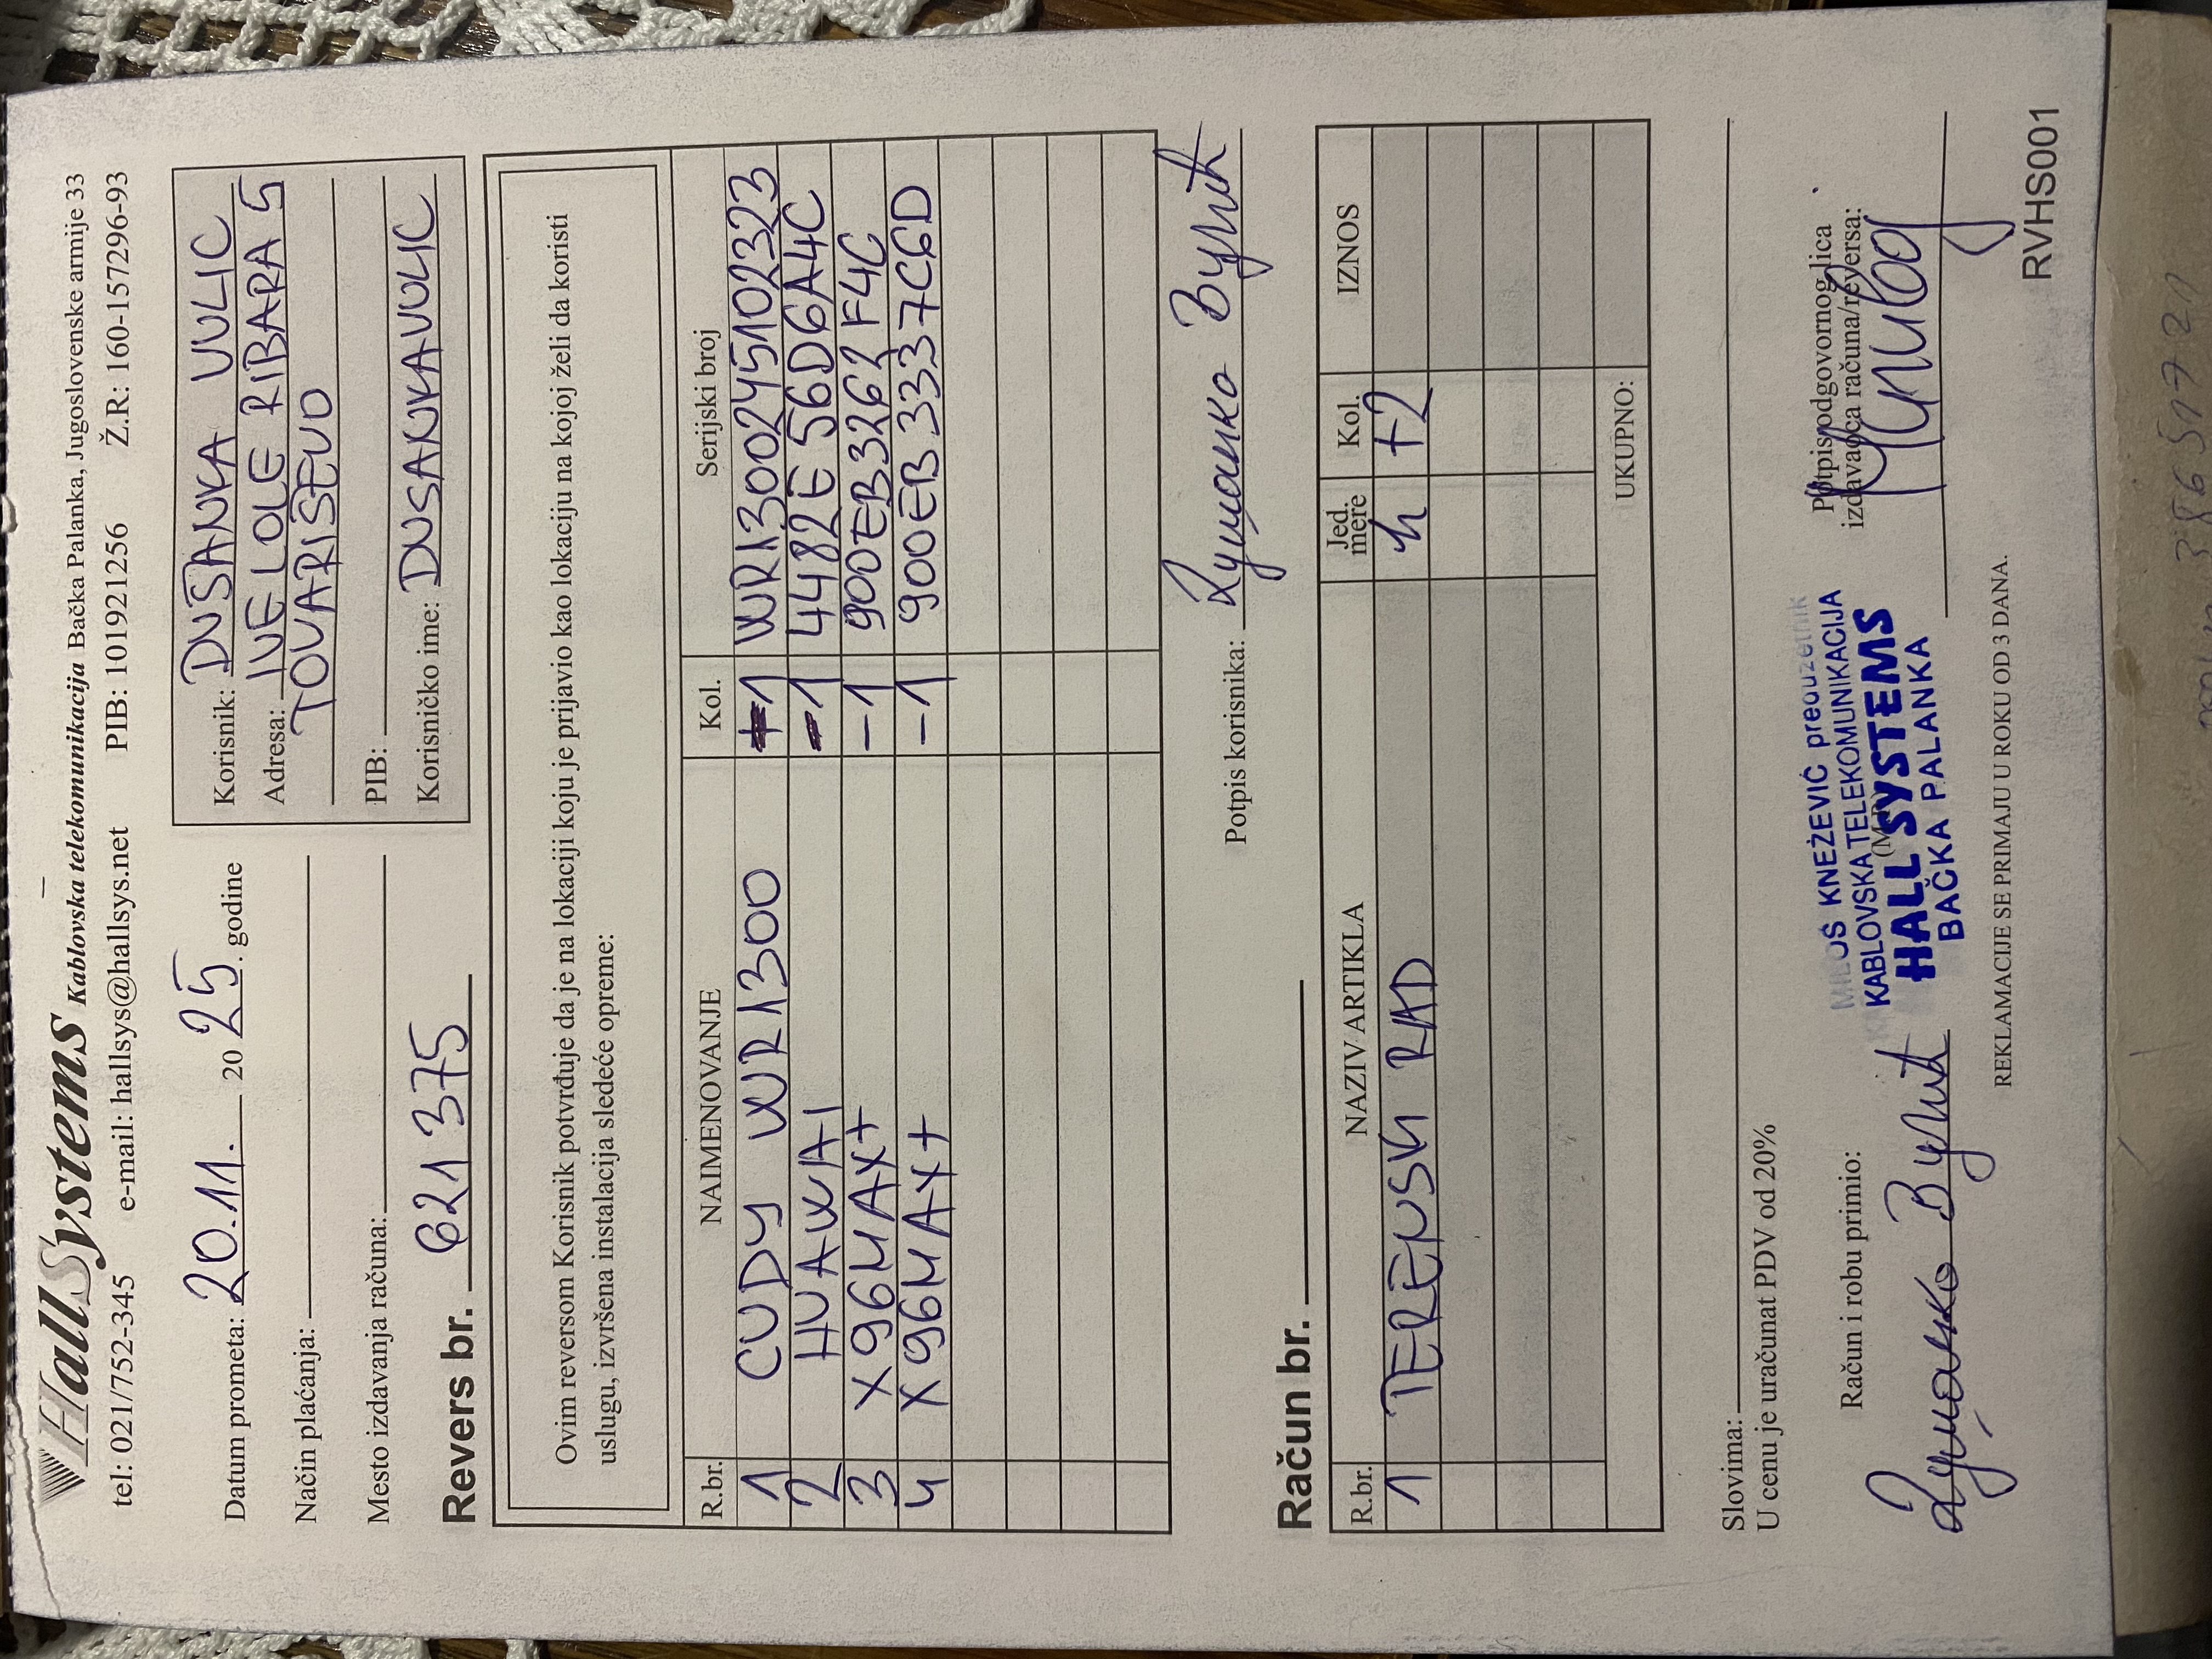 HallSystems Kablovska telekomunikacija Bačka Palanka, Jugoslovenske armije 33
tel: 021/752-345 e-mail: hallsys@hallsys.net PIB: 101921256 Ž.R: 160-157296-93
Datum prometa: 20.11. 2025. godine
Način plaćanja:
Mesto izdavanja računa:
Korisnik: DUŠANKA VULIC
Adresa: IVE LOLE RIBARA 5
TOVARISEVO
PIB:
Korisničko ime: DUSANKAVULIC
Revers br. 621375
Ovim reversom Korisnik potvrđuje da je na lokaciji koju je prijavio kao lokaciju na kojoj želi da koristi
uslugu, izvršena instalacija sledeće opreme:
R.br. NAIMENOVANJE Kol. Serijski broj
1 CUDY WR1300 +1 WR1300245102323
2 HUAWAI -1 4482E56D6A4C
3 X96MAX+ -1 900EB3262F4C
4 X96MAX+ -1 900EB3337C6D
Potpis korisnika: Душанка Вулић
Račun br.
R.br. NAZIV ARTIKLA Jed. mere Kol. IZNOS
1 TERENSKI RAD h +2
UKUPNO:
Slovima:
U cenu je uračunat PDV od 20%
Račun i robu primio:
Душанка Вулић
MILOŠ KNEŽEVIĆ preduzetnik
KABLOVSKA TELEKOMUNIKACIJA
(M.P.)
HALL SYSTEMS
BAČKA PALANKA
Potpis odgovornog lica
izdavaoca računa/reversa:
REKLAMACIJE SE PRIMAJU U ROKU OD 3 DANA.
RVHS001